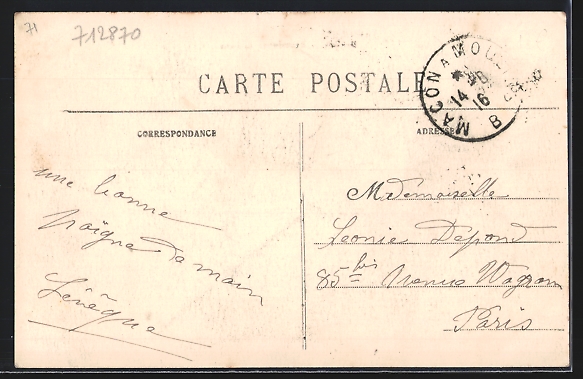 71
712870
CARTE POSTALE
MACON A MOUL
14
16
B
CORRESPONDANCE
ADRESSE
une bonne
Poigne de main
Mademoiselle
Leonie Depond
85 bis Avenue Wagram
Paris